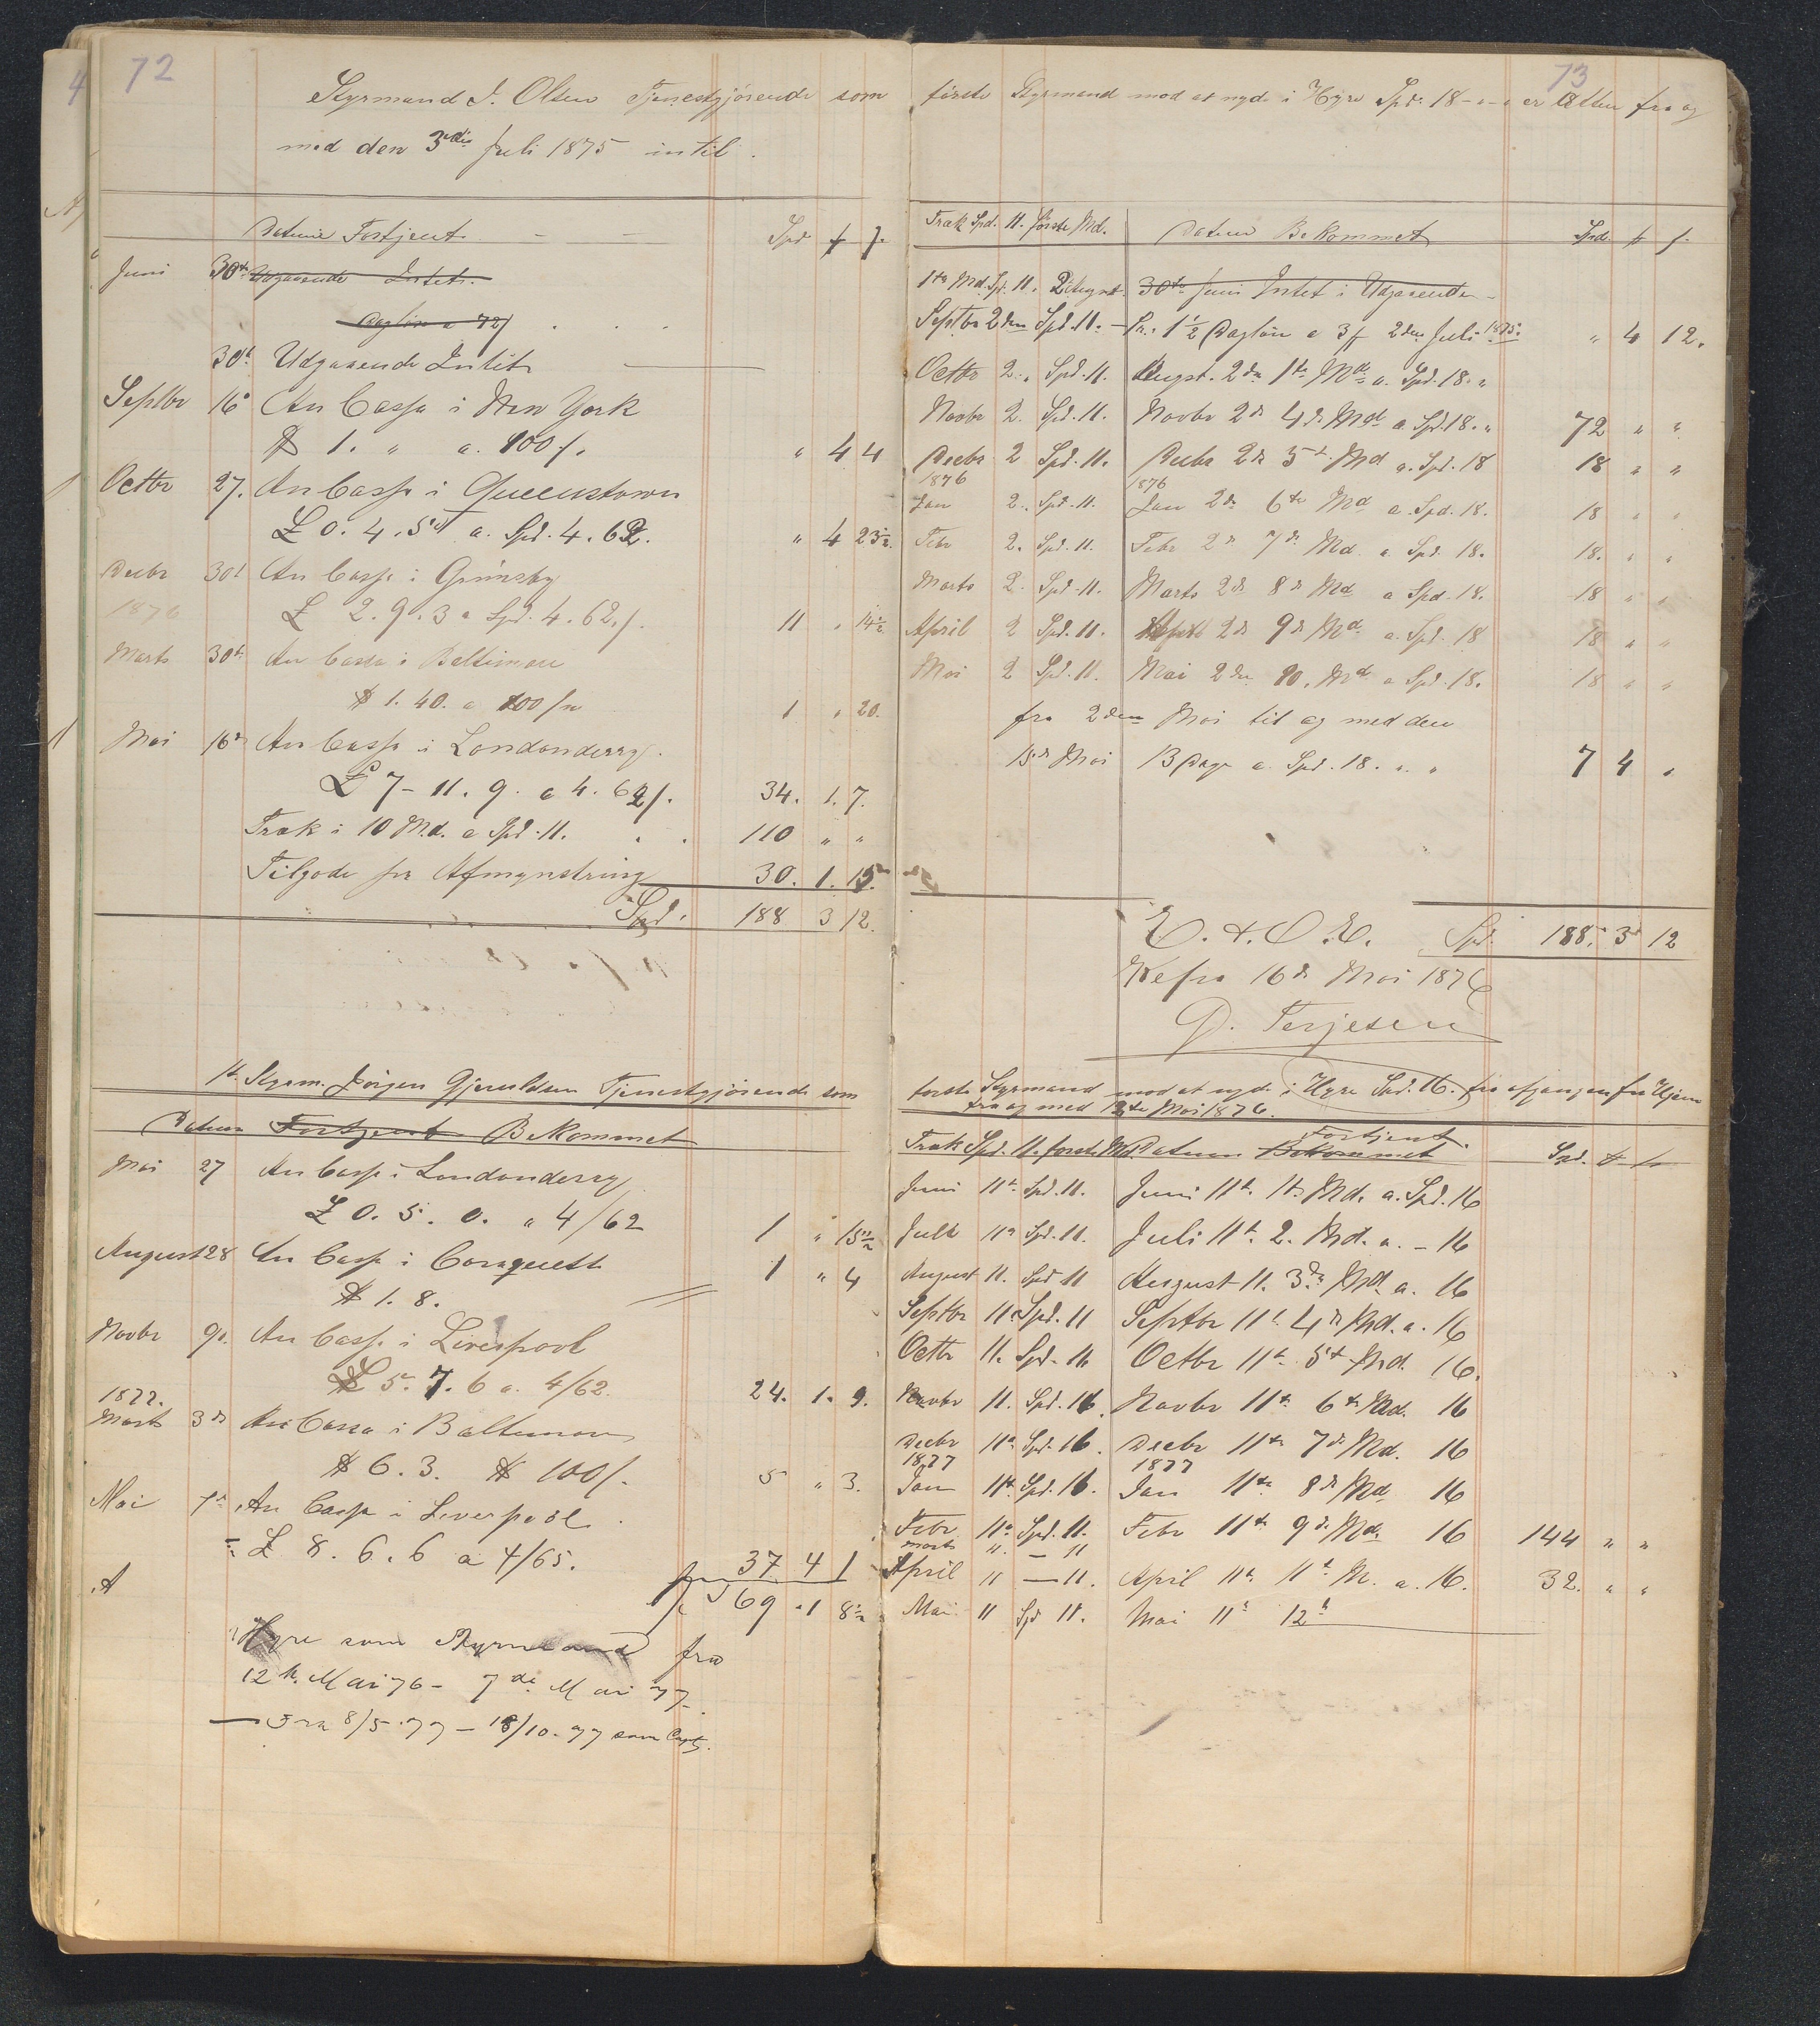 72
Styrmand J. Olsen Tjenestgjörende som
med den 3die Juli 1875 intil.
Datum Fortjent
Spd.
Juni 30te Udgaaende Intet.
Daglön a 72
30t Udgaaende Intet
Septbr 16d An Cassa i New York
$ 1. " a. 100 f. " 4 4
Octbr 27. An Cassa i Queenstown
£ 0. 4. 5d a. Spd. 4. 62. " 4 23½
Decbr 30t An Cassa i Grimsby
1876
£ 2. 9. 3 a Spd. 4. 62. 11 " 14½
Marts 30t An Cassa i Baltimore
$ 1. 40. a 100 1 " 20.
Mai 16d An Cassa i Londonderry.
£ 7 - 11. 9. a 4. 62. 34. 1. 7.
Træk i 10 Md. a Spd. 11. 110 " "
Tilgode for Afmynstring 30. 1. 15.
Spd. 188 3 12.
1te Styrm. Jörgen Gjeruldsen Tjenestgjörende som
Datum Fortjent Bekommet
Mai 27 An Cassa i Londonderry
£ 0. 5. 0. a 4/62 1 " 15½
August 28 An Cassa i
$ 1. 8. 1 " 4
Novbr 9d. An Cassa i Liverpool
£ 5. 7. 6 a. 4/62. 24. 1. 9.
1877.
Marts 3d An Cassa i Baltimore
$ 6. 3. $ 100 f. 5 " 3.
Mai 7d An Cassa i Liverpool
£ 8. 6. 6 a 4/65. 37 4 1
69 1 8½
Hyre som Styrmand fra
12te Mai 76 - 7de Mai 77
Fra 8/5. 77 - 18/10. 77 som Capt.
73
förste Styrmand mod at nyde i Hyre Spd. 18 - " - " er Atten fra og
Træk Spd. 11. förste Md. Datum Bekommet Spd.
1te Md. Spd. 11. 30te Juni Intet i Udgaaende
Septbr 2den Spd. 11. 1½ Daglön a 2den Juli 1875. " 4 12.
Octbr 2. " Spd. 11. Augst. 2den 1te Md. a. Spd. 18. "
Novbr 2. Spd. 11. Novbr 2d 4d. Md a. Spd. 18. " 72 " "
Decbr 2 Spd. 11. Decbr 2d 5t Md a. Spd. 18 18 " "
1876 1876
Jan 2. Spd. 11. Jan 2d 6te Md a. Spd. 18. 18 " "
Febr 2. Spd. 11. Febr 2d 7d Md a Spd. 18. 18. " "
Marts 2. Spd. 11. Marts 2d 8d Md a Spd. 18. 18 " "
April 2 Spd. 11. April 2d 9d Md a. Spd. 18 18 " "
Mai 2 Spd. 11. Mai 2den 10. Md a Spd. 18. 18 " "
fra 2den Mai til og med den
15d Mai 13 Dage a. Spd. 18. " " 7 4 "
E. & O. E. Spd. 188. 3 12
16d Mai 1876
D. Terjesen
förste Styrmand mod at nyde i Hyre Spd. 16. fra afgangen fra Hjem
fra og med 12te Mai 1876.
Træk Spd. 11. förste Md. Datum Bekommet Fortjent. Spd.
Juni 11te Spd. 11. Juni 11te 1te Md. a. Spd. 16
Juli 11te Spd. 11. Juli 11te 2. Md. a. - 16
August 11. Spd 11 August 11. 3de Md. a. 16
Septbr 11 Spd. 11 Septbr 11te 4d Md. a. 16
Octbr 11. Spd. 11 Octbr 11te 5t Md. 16.
Novbr 11. Spd. 16. Novbr 11te 6te Md. 16
Decbr 11te Spd. 16. Decbr 11te 7d Md. 16
1877 1877
Jan 11te Spd. 16. Jan 11te 8d Md. 16
Febr 11te Spd. 11. Febr 11te 9de Md. 16 144 " "
Marts 11. — 11
April 11 — 11. April 11te 11te M. a. 16. 32. " "
Mai 11 Spd 11. Mai 11te 12te